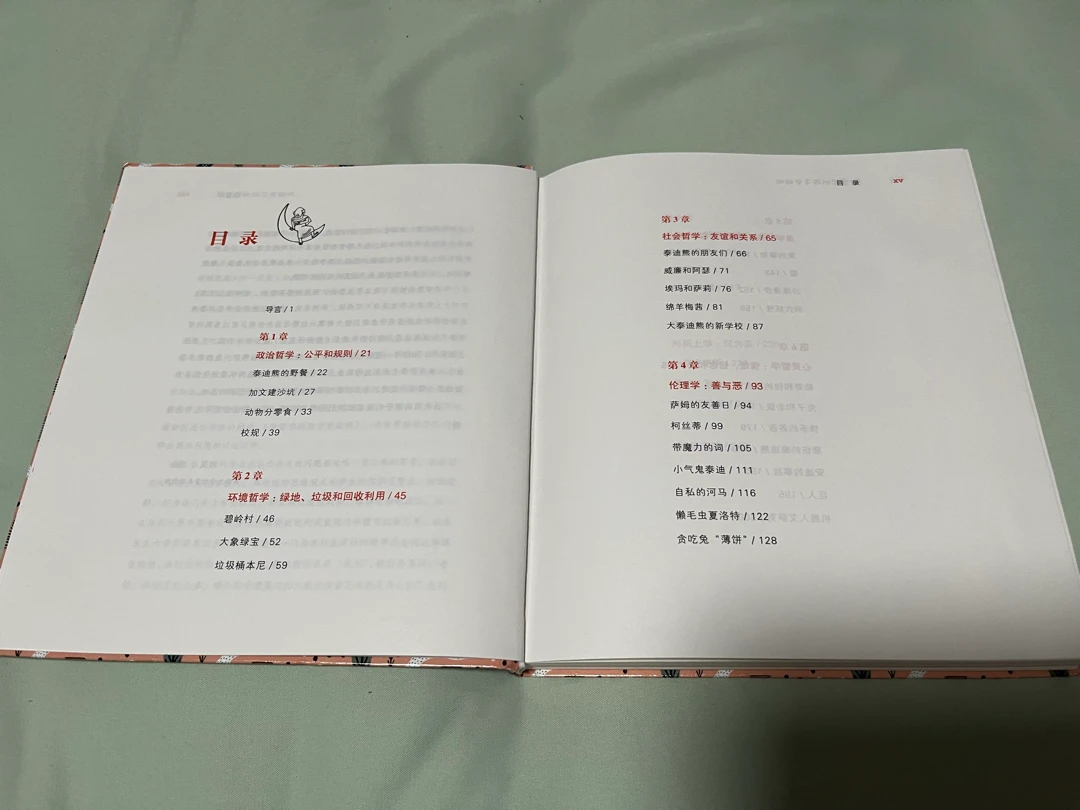 目录
导言 / 1
第 1 章
政治哲学：公平和规则 / 21
泰迪熊的野餐 / 22
加文建沙坑 / 27
动物分零食 / 33
校规 / 39
第 2 章
环境哲学：绿地、垃圾和回收利用 / 45
碧岭村 / 46
大象绿宝 / 52
垃圾桶本尼 / 59
目 录 XV
第 3 章
社会哲学：友谊和关系 / 65
泰迪熊的朋友们 / 66
威廉和阿瑟 / 71
埃玛和萨莉 / 76
绵羊梅茜 / 81
大泰迪熊的新学校 / 87
第 4 章
伦理学：善与恶 / 93
萨姆的友善日 / 94
柯丝蒂 / 99
带魔力的词 / 105
小气鬼泰迪 / 111
自私的河马 / 116
懒毛虫夏洛特 / 122
贪吃兔“薄饼” / 128